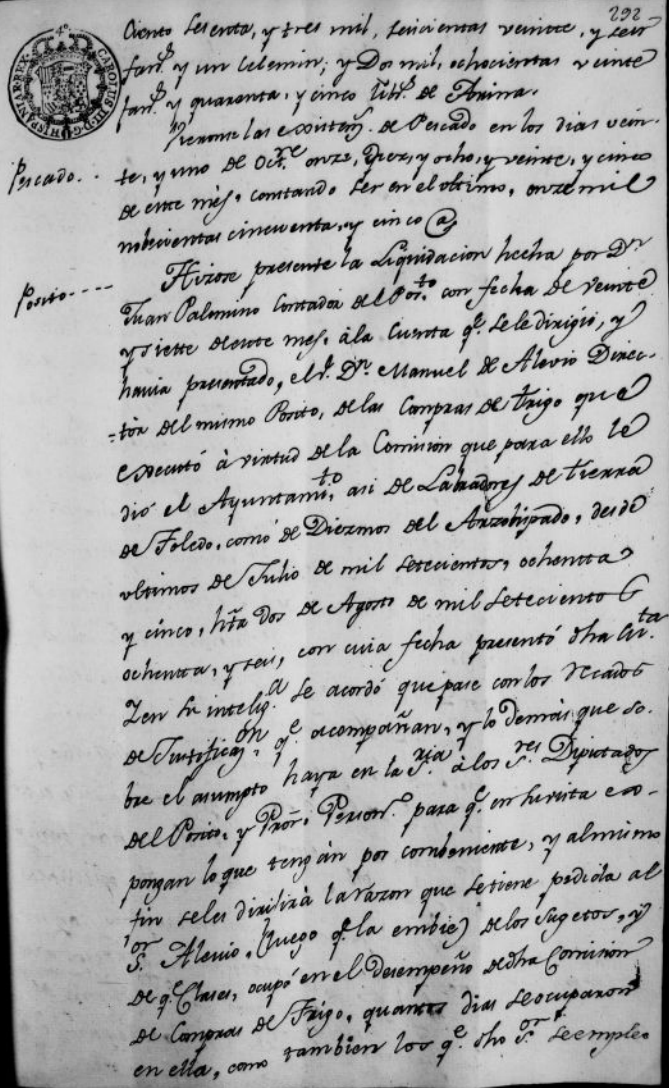 292
Ciento sesenta, y tres mil, seiscientas veinte, y seis
fan.s y un celemin; y Dos mil, ochocientas veinte
fan.s y quarenta, y cinco lib.s de Arina.
CAROLUS III D G HISPANIAR REX
Pescado..
Vieronse las existen.s de Pescado en los dias vein-
te, y uno de Oct.re onze, Diez, y ocho, y veinte, y cinco
de este mes, constando ser en el ultimo, onze mil
nobecientas cincuenta, y cinco @
Posito----
Hizose presente la Liquidacion hecha por Dn
Juan Palomino Contador del Pos.to con fecha de veinte
y siette de este mes, à la Cuenta q.e se le dirigió, y
havia presentado, el S.r Dn Manuel de Alevio Direc-
=tor del mismo Posito, de las Compras de trigo que
executó à virtud de la Comision que para ello le
dió el Ayuntam.to, asi de Labradores de tierra
de Toledo, como de Diezmos del Arzobispado, desde
ultimos de Julio de mil setecientos, ochentta
y cinco, hta dos de Agosto de mil setecientos
ochentta, y seis, con cuia fecha presentó dha Cu.ta
Y en su intelig.a se acordó que pase con los recados
de Justificaz.on q.e acompañan, y lo demàs que so-
bre el asumpto haya en la S.ria à los S.res Diputados
del Posito, y Pror. Person.o para q.e en su vista ex-
pongan lo que tengan por combeniente, y al mismo
fin se les dirixirà la razon que se tiene pedida al
S.or Alevio, (luego q.e la embie) de los Sugetos, y
de q.e Clases, ocupó en el desempeño de dha Comision
de Compras de Trigo, quantos dias se ocuparon
en ella, como tambien los q.e dho S.or se empleo